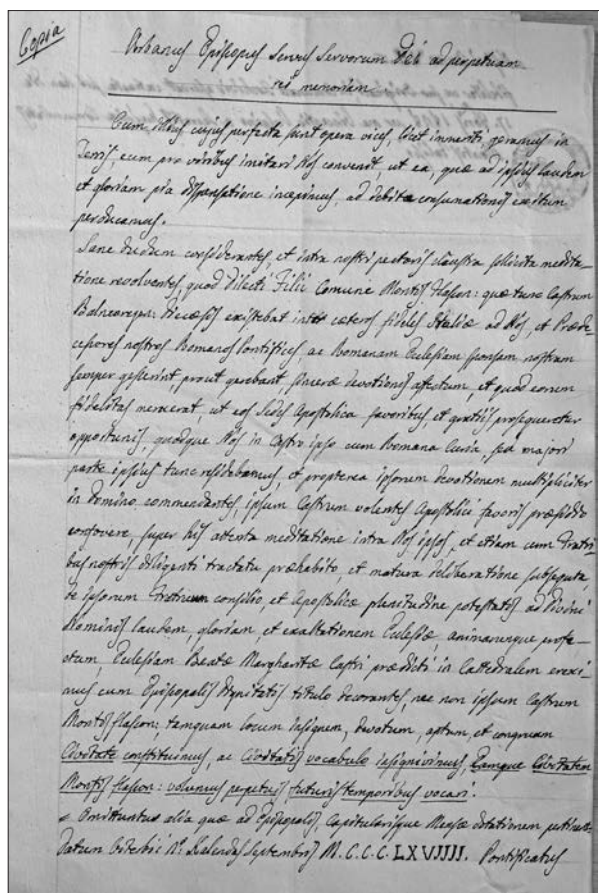 Copia
Urbanus Episcopus Servus Servorum Dei ad perpetuam
rei memoriam
Cum Illius cujus perfecta sunt opera vices, licet immeriti, geramus in
Terris, eum pro viribus imitari Nos convenit, ut ea, quæ ad ipsius laudem
et gloriam pia dispensatione incepimus, ad debitæ consumationis exitum
perducamus.
Sane dudum considerantes, et intra nostri pectoris claustra sollicita medita-
tione revolventes, quod dilecti Filii Comune Montis Flascon: quæ tunc Castrum
Balneoregien: Diecesis existebat inter cæteros fideles Italiæ ad Nos, et Præde-
cessores nostros Romanos Pontifices, ac Romanam Ecclesiam sponsam nostram
semper gesserint, prout gerebant sinceræ devotionis affectum, et quod eorum
fidelitas meruerat, ut eos Sedes Apostolica favoribus, et gratiis prosequeretur
opportunis, quodque Nos in Castro ipso cum Romana Curia, seu majori
parte ipsius tunc residebamus, et propterea ipsorum devotionem multipliciter
in Domino commendantes, ipsum Castrum volentes Apostolici favoris præsidio
confovere, super his attenta meditatione intra Nos ipsos, et etiam cum Fratri-
bus nostris diligenti tractatu præhabito, et matura deliberatione subsequuta,
de ipsorum Fratrum consilio, et Apostolicæ plenitudine potestatis ad Divini
Nominis laudem, gloriam, et exaltationem Ecclesiæ, animarumque profe-
ctum, Ecclesiam Beatæ Margharitæ Castri prædicti in Cattedralem erexi-
mus cum Episcopalis dignitatis titulo decorantes, nec non ipsum Castrum
Montis flascon: tamquam locum insignem, devotum, aptum, et congruum
Civitatem constituimus, ac Civitatis vocabulo insignivimus, Eamque Civitatem
Montis flascon: volumus perpetuis futuris temporibus vocari.
Omittuntur alia quæ ad Episcopalis, Capitularisque Mensæ dotationem
Datum Viterbii Kalendas Septembris M.C.C.C.LXVIIII. Pontificatus